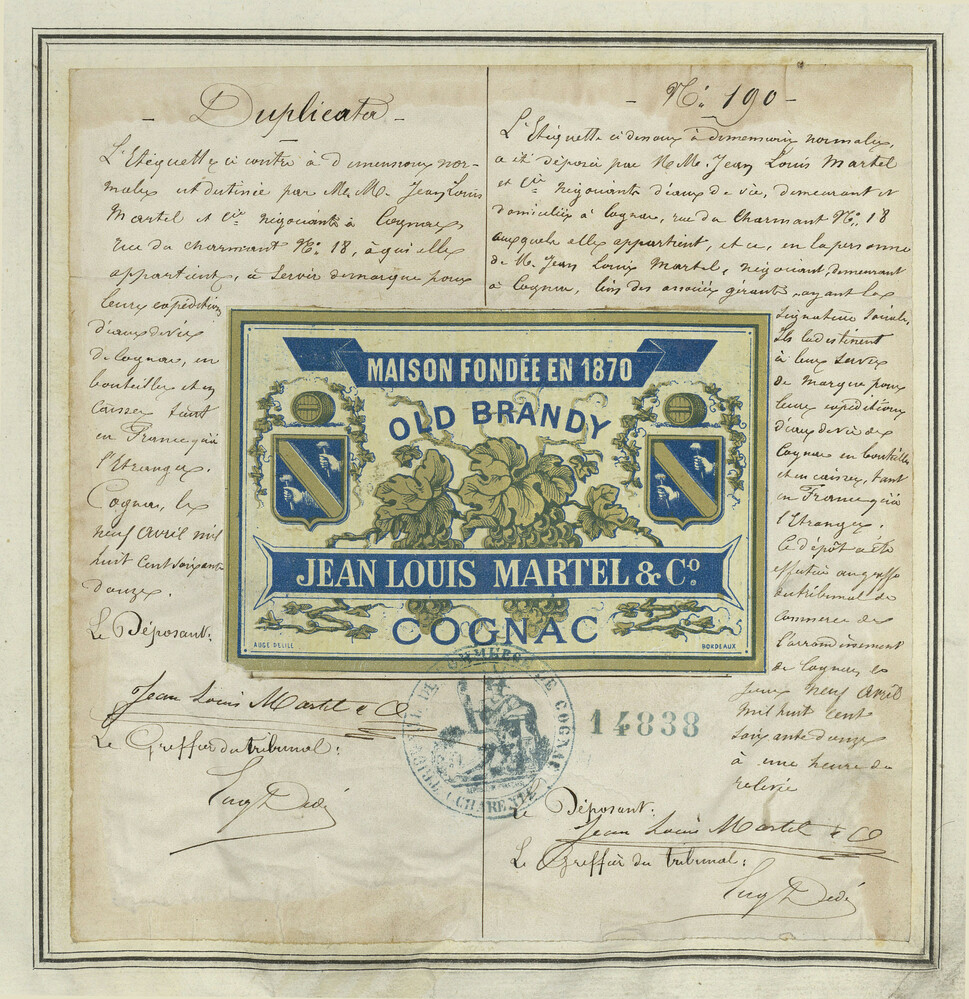 - Duplicata -
L'Etiquette ci contre à dimensions nor-
males est destinée par M.M. Jean Louis
Martel et Cie négociants à Cognac,
rue du Charmant No. 18, à qui elle
appartient, à servir de marque pour
leurs expéditions
d'eaux de vie
de Cognac, en
bouteilles et en
caisses tant
en France qu'à
l'Etranger.
Cognac, le
neuf avril mil
huit cent soixante
douze.
Le Déposant:
Jean Louis Martel & Co
Le Greffier du tribunal:
- No. 190 -
L'Etiquette ci dessous à dimensions normales,
a été déposée par M.M. Jean Louis Martel
et Cie négociants d'eaux de vie, demeurant et
domiciliés à Cognac, rue du Charmant No. 18
auxquels elle appartient, et ce, en la personne
de M. Jean Louis Martel, négociant demeurant
à Cognac, l'un des associés gérants ayant la
signature sociale,
Ils la destinent
à leur servir
de marque pour
leurs expéditions
d'eaux de vie de
Cognac en bouteilles
et en caisses, tant
en France qu'à
l'Etranger.
Ce dépôt a été
effectué au greffe
du tribunal de
commerce de
l'arrondissement
de Cognac, le
jour neuf avril
mil huit cent
soixante douze
à une heure de
relevée
Le Déposant:
Jean Louis Martel & Co
Le Greffier du tribunal:
MAISON FONDÉE EN 1870
OLD BRANDY
JEAN LOUIS MARTEL & Co.
COGNAC
AUGE DELILE
BORDEAUX
COMMERCE DE COGNAC
CHARENTE
14838